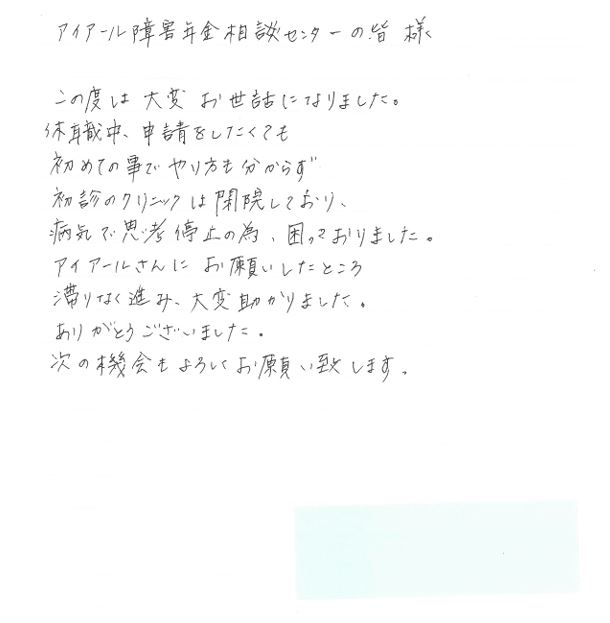 アイアール障害年金相談センターの皆様
この度は大変お世話になりました。
休職中、申請をしたくても
初めての事でやり方も分からず
初診のクリニックは閉院しており、
病気で思考停止の為、困っておりました。
アイアールさんにお願いしたところ
滞りなく進み、大変助かりました。
ありがとうございました。
次の機会もよろしくお願い致します。